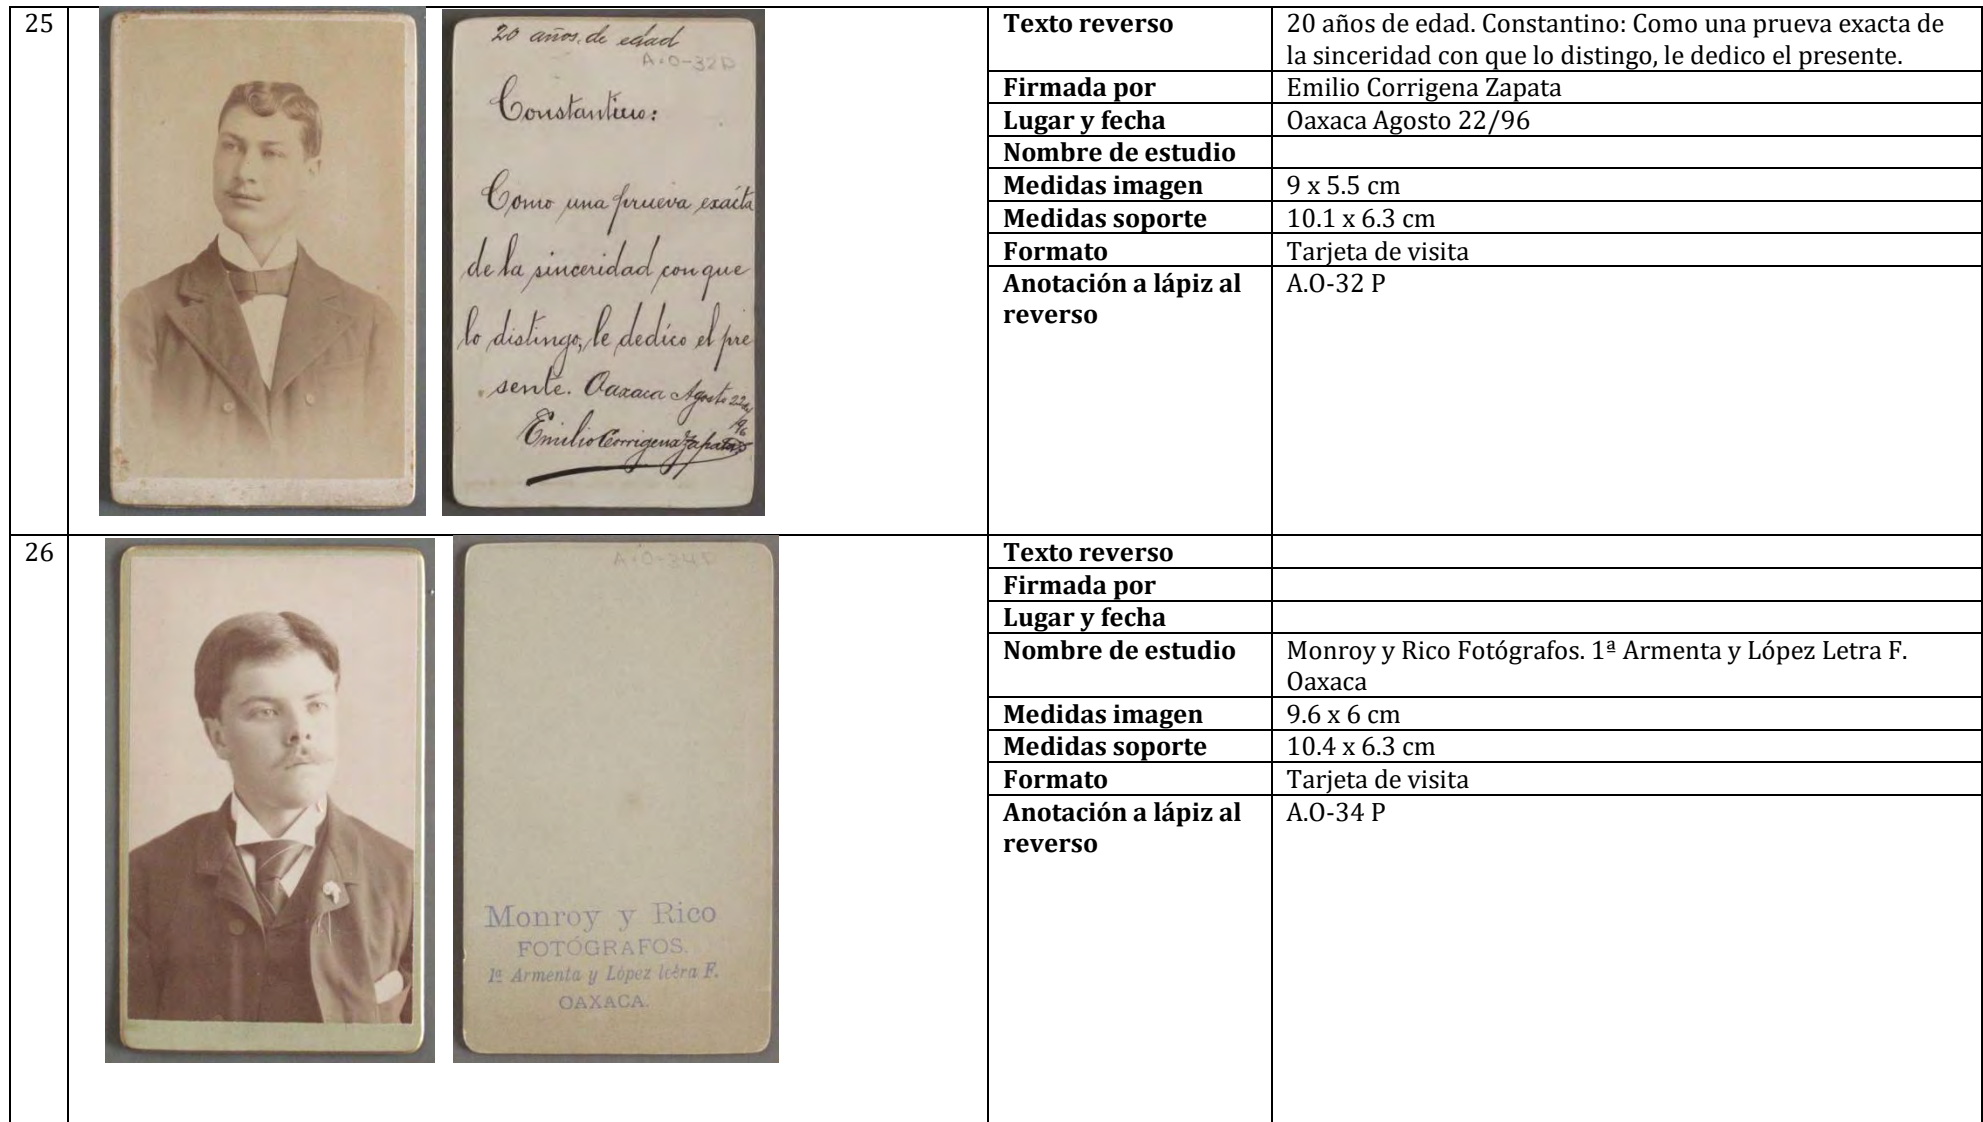 25
20 años de edad
A.O-32P
Constantino:
Como una prueva exacta
de la sinceridad con que
lo distingo, le dedico el pre
sente. Oaxaca Agosto 22 de
/96
Emilio Corrigena Zapata
Texto reverso
20 años de edad. Constantino: Como una prueva exacta de
la sinceridad con que lo distingo, le dedico el presente.
Firmada por
Emilio Corrigena Zapata
Lugar y fecha
Oaxaca Agosto 22/96
Nombre de estudio
Medidas imagen
9 x 5.5 cm
Medidas soporte
10.1 x 6.3 cm
Formato
Tarjeta de visita
Anotación a lápiz al
reverso
A.O-32 P
26
A.O-34P
Monroy y Rico
FOTÓGRAFOS.
1ª Armenta y López letra F.
OAXACA.
Texto reverso
Firmada por
Lugar y fecha
Nombre de estudio
Monroy y Rico Fotógrafos. 1ª Armenta y López Letra F.
Oaxaca
Medidas imagen
9.6 x 6 cm
Medidas soporte
10.4 x 6.3 cm
Formato
Tarjeta de visita
Anotación a lápiz al
reverso
A.O-34 P